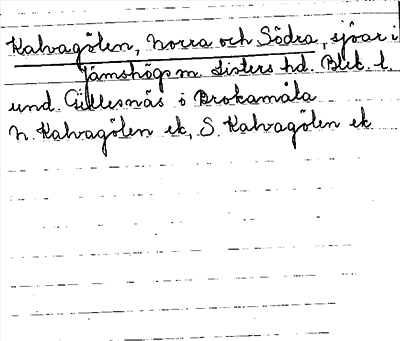 Kalvagölen, Norra och Södra, sjöar i
Jämshögs sn. Listers hd. Blek. l.
und. Gillesnäs i Brokamåla
N. Kalvagölen ek, S. Kalvagölen ek